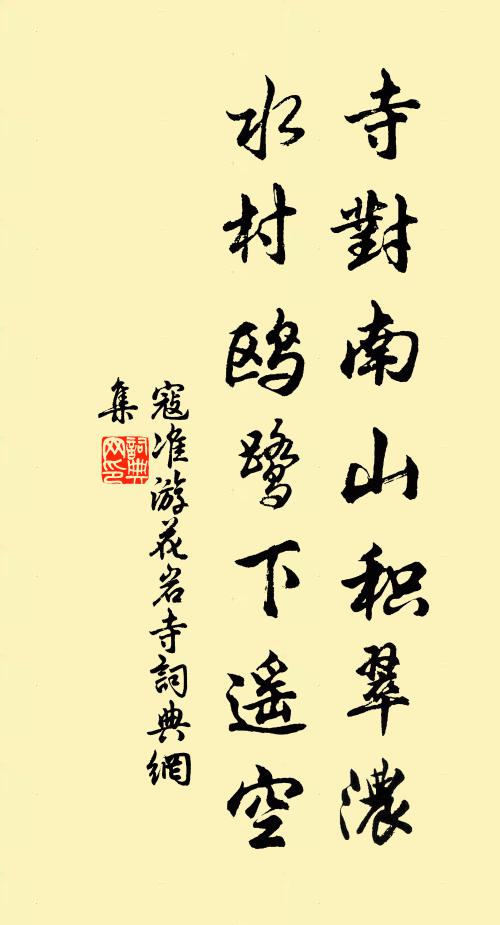 寺對南山积翠濃
水村鸥鹭下遥空
寇准游花岩寺詞典網
集
詞典网印